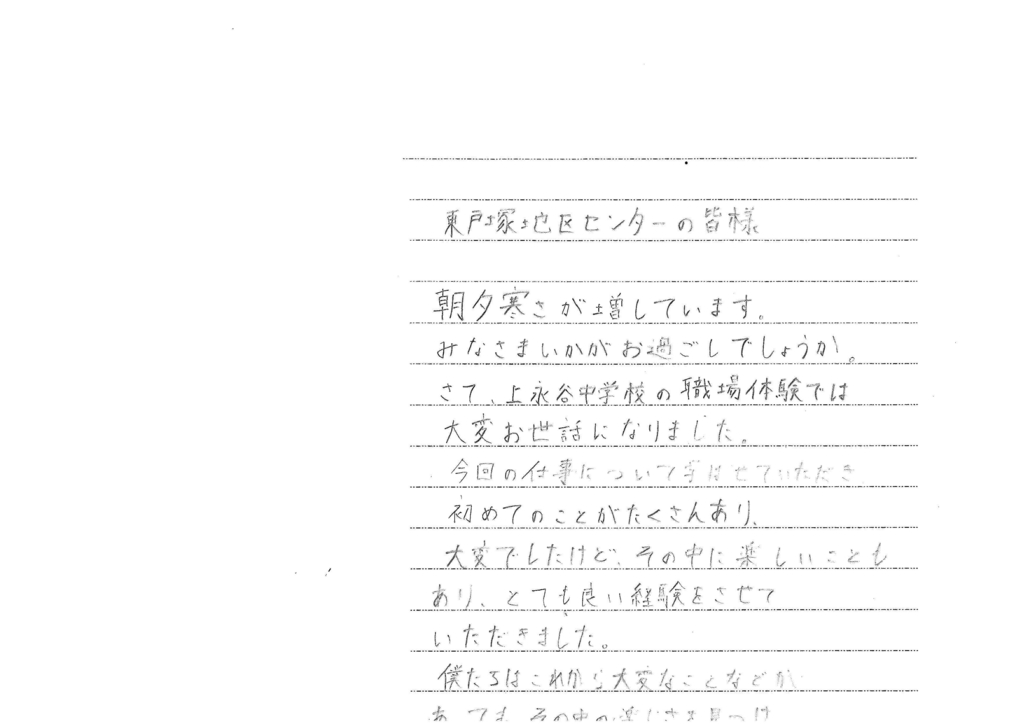 東戸塚地区センターの皆様
朝夕寒さが増しています。
みなさまいかがお過ごしでしょうか。
さて、上永谷中学校の職場体験では
大変お世話になりました。
今回の仕事について学ばせていただき
初めてのことがたくさんあり、
大変でしたけど、その中に楽しいことも
あり、とても良い経験をさせて
いただきました。
僕たちはこれから大変なことなどが
あっても、その中の楽しさを見つけ